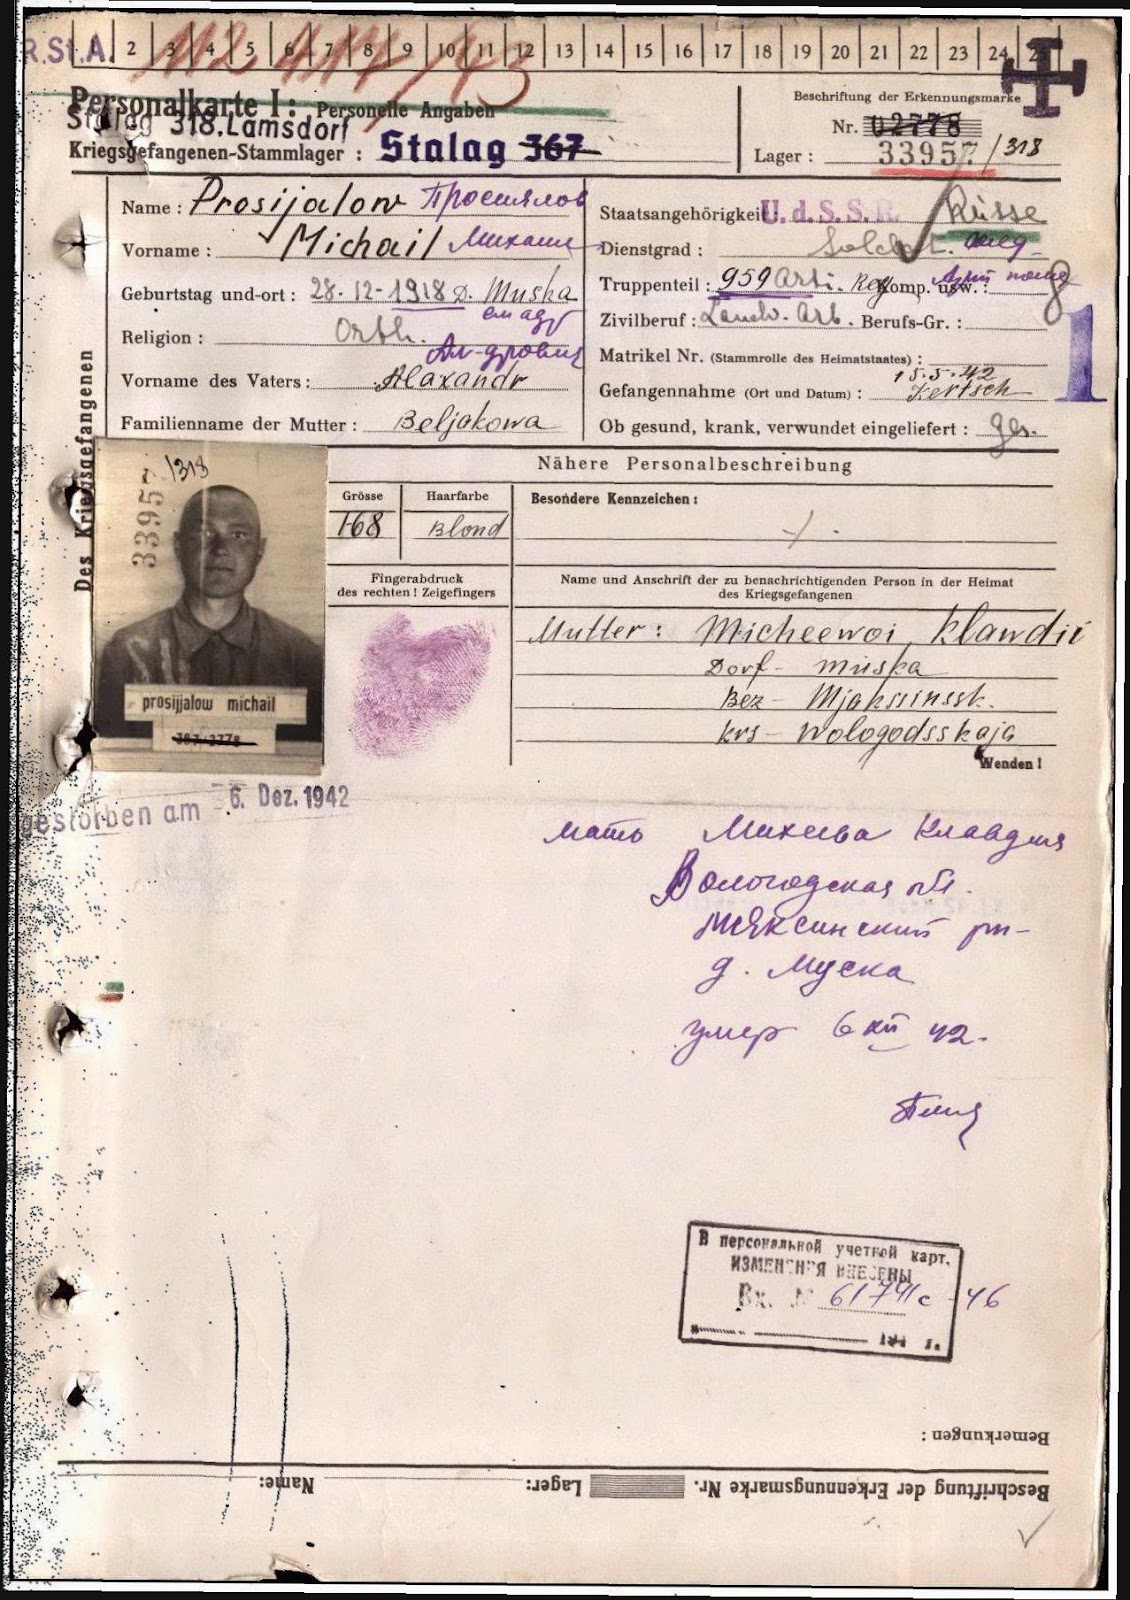 R.St.A. 2 3 4 5 6 7 8 9 10 11 12 13 14 15 16 17 18 19 20 21 22 23 24 25
Personalkarte I: Personelle Angaben
Stalag 318.Lamsdorf
Kriegsgefangenen-Stammlager : Stalag 367
Beschriftung der Erkennungsmarke
Nr. 02778
Lager : 33957/318
Des Kriegsgefangenen
Name : Prosijalow Просиялов
Vorname : Michail Михаил
Geburtstag und-ort : 28.12.1918 D. Muska
Religion : Orth.
Ал-дрович
Vorname des Vaters : Alaxandr
Familienname der Mutter : Beljakowa
Staatsangehörigkeit U.d.S.S.R. Russe
Dienstgrad : Soldat.
Truppenteil : 959 Arti. Reg Komp. usw. : 8
Zivilberuf : Landw. Arb. Berufs-Gr. :
1
Matrikel Nr. (Stammrolle des Heimatstaates) :
15.5.42
Gefangennahme (Ort und Datum) : Kertsch
Ob gesund, krank, verwundet eingeliefert : ges.
Nähere Personalbeschreibung
33957 /318
prosijjalow michail
367/2778
Grösse
168
Haarfarbe
Blond
Besondere Kennzeichen :
Fingerabdruck
des rechten ! Zeigefingers
Name und Anschrift der zu benachrichtigenden Person in der Heimat
des Kriegsgefangenen
Mutter : Micheewoi, Klawdii
Dorf - Muska
Bez - Mjakssinssk.
krs - Wologodsskaja
Wenden !
gestorben am 6. Dez. 1942
мать Михеева Клавдия
Вологодская обл.
Мяксинский рн-
д. Муска
умер 6 XII 42.
В персональной учетной карт.
ИЗМЕНЕНИЯ ВНЕСЕНЫ
Вх. № 61741с -46
194 г.
Bemerkungen :
Beschriftung der Erkennungsmarke Nr. Lager: Name: